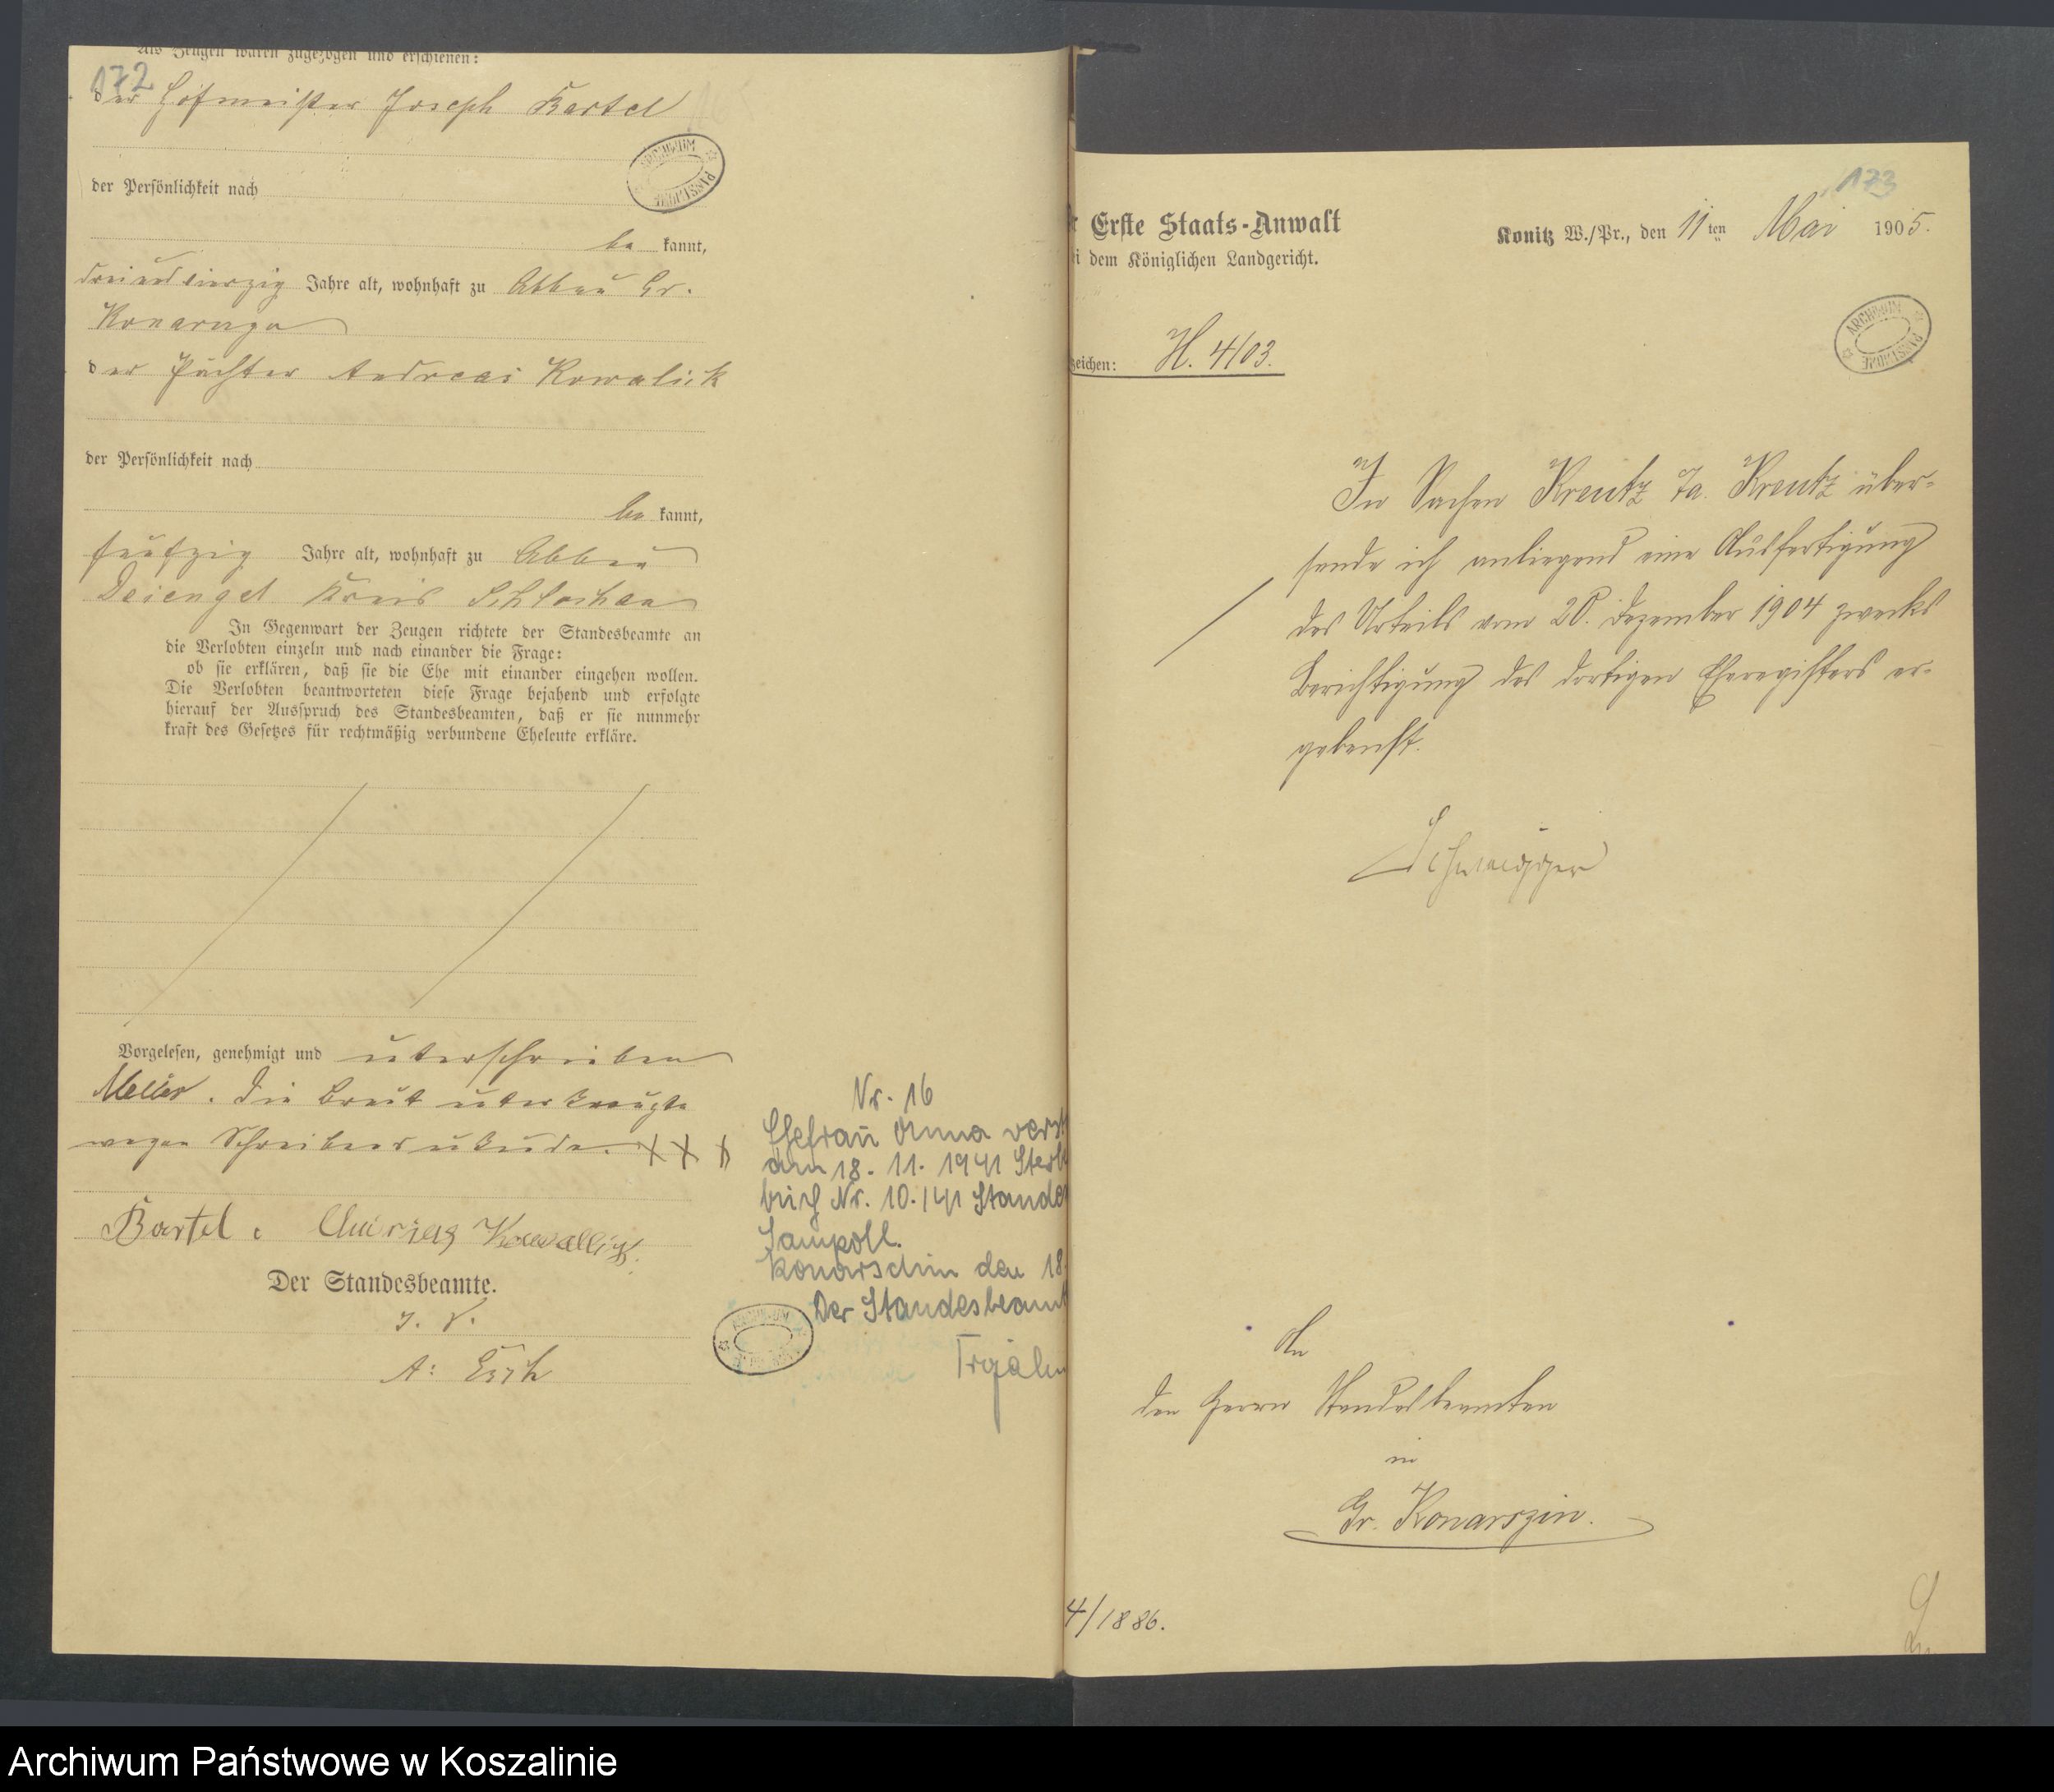 Als Zeugen waren zugezogen und erschienen:
172
der Hofmeister Joseph Bartel
ARCHIWUM PAŃSTWOWE
der Persönlichkeit nach
be kannt,
dreiundvierzig Jahre alt, wohnhaft zu Abbau Gr.
der Pächter Andreas Kowalick
der Persönlichkeit nach
be kannt,
fünfzig Jahre alt, wohnhaft zu Abbau
Kreis Schlochau
In Gegenwart der Zeugen richtete der Standesbeamte an
die Verlobten einzeln und nach einander die Frage:
ob sie erklären, daß sie die Ehe mit einander eingehen wollen.
Die Verlobten beantworteten diese Frage bejahend und erfolgte
hierauf der Ausspruch des Standesbeamten, daß er sie nunmehr
kraft des Gesetzes für rechtmäßig verbundene Eheleute erkläre.
Vorgelesen, genehmigt und unterschrieben
. Die Braut unterkreuzte
wegen Schreibensunkunde. XXX
Bartel. Kowallick.
Der Standesbeamte.
I. V.
A:
Nr. 16
Ehefrau Anna verst
am 18. 11. 1941 Sterbe
buch Nr. 10./41 Standes
Sampoll.
Konarschin den 18
Der Standesbeamt
ARCHIWUM PAŃSTWOWE
173
r Erste Staats-Anwalt
i dem Königlichen Landgericht.
Konitz W./Pr., den 11ten Mai 1905.
ARCHIWUM PAŃSTWOWE
zeichen: H. 4/03.
In Sachen Kreutz ca. Kreutz über-
sende ich anliegend eine Ausfertigung
des Urteils vom 20. Dezember 1904 zwecks
Berichtigung des dortigen Eheregisters er-
gebenst.
Schweigger
An
den Herrn Standesbeamten
in
Gr. Konarszin.
4/1886.
Archiwum Państwowe w Koszalinie